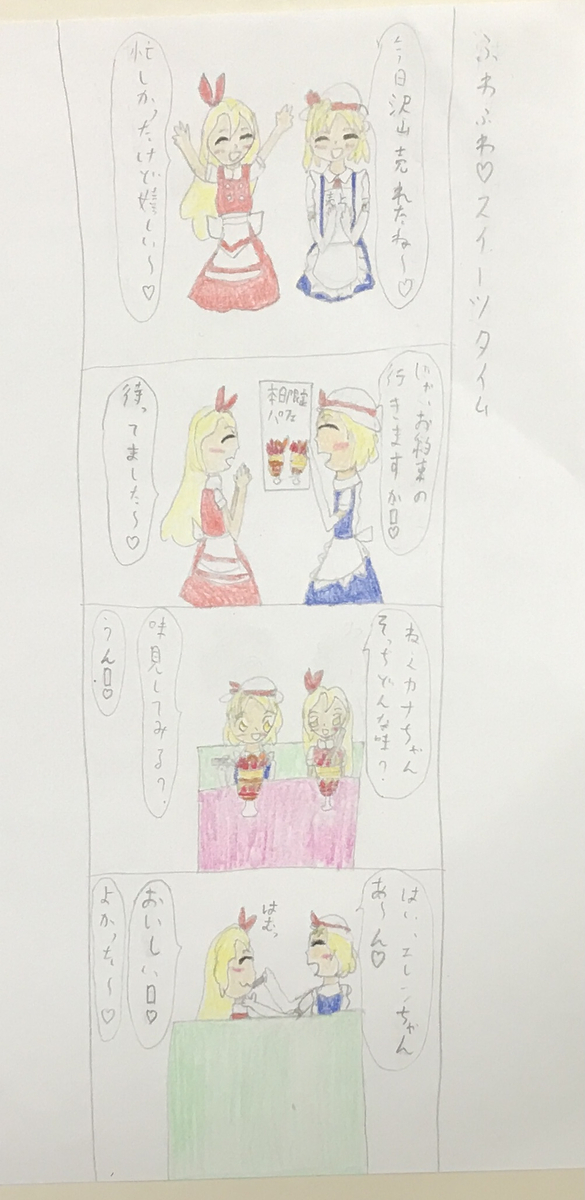 ふわふわ♡スイーツタイム
今日沢山売れたね〜♡
忙しかったけど嬉しい〜♡
売上
じゃ、お約束の
行きますか♡
本日限定
パフェ
待ってました〜♡
ねぇカナちゃん
そっちどんな味?
味見してみる?
うん♡
はい、エレンちゃん
あ〜ん♡
はむっ
おいしい♡
よかった〜♡